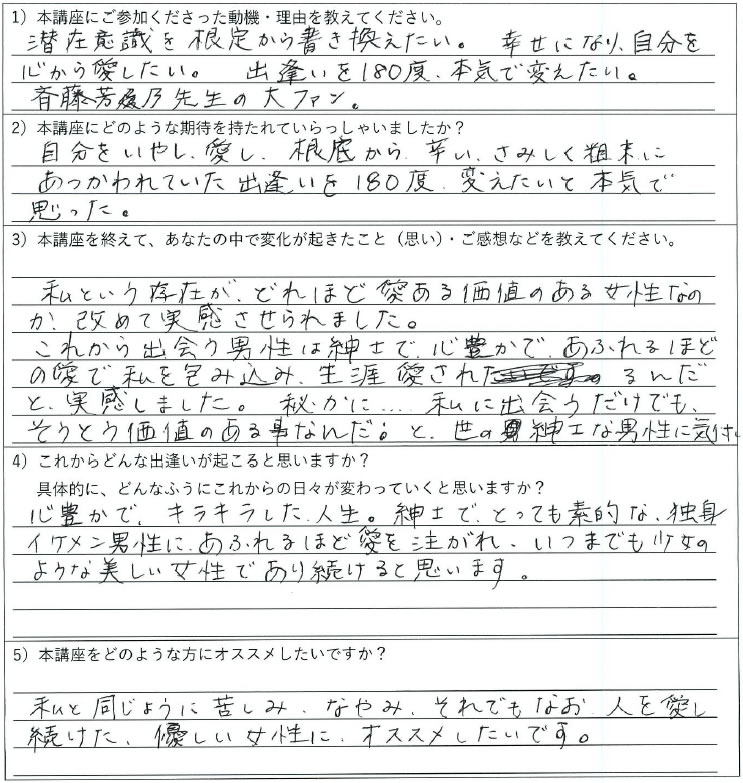 1）本講座にご参加くださった動機・理由を教えてください。
潜在意識を根定から書き換えたい。 幸せになり、自分を
心から愛したい。 出逢いを180度、本気で変えたい。
斉藤芳乃先生の大ファン。
2）本講座にどのような期待を持たれていらっしゃいましたか？
自分をいやし、愛し、根底から、辛い、さみしく粗末に
あつかわれていた出逢いを180度、変えたいと本気で
思った。
3）本講座を終えて、あなたの中で変化が起きたこと（思い）・ご感想などを教えてください。
私という存在が、どれほど愛ある価値のある女性なの
か、改めて実感させられました。
これから出会う男性は紳士で、心豊かで、あふれるほど
の愛で私を包み込み、生涯愛されるんだ
と、実感しました。 秘かに…‥ 私に出会うだけでも、
そうとう価値のある事なんだ。と、世の紳士な男性に気付
4）これからどんな出逢いが起こると思いますか？
具体的に、どんなふうにこれからの日々が変わっていくと思いますか？
心豊かで、キラキラした、人生。紳士で、とっても素的な、独身
イケメン男性に、あふれるほど愛を注がれ、いつまでも少女の
ような美しい女性であり続けると思います。
5）本講座をどのような方にオススメしたいですか？
私と同じように苦しみ、なやみ、それでもなお、人を愛し
続けた、優しい女性に、オススメしたいです。